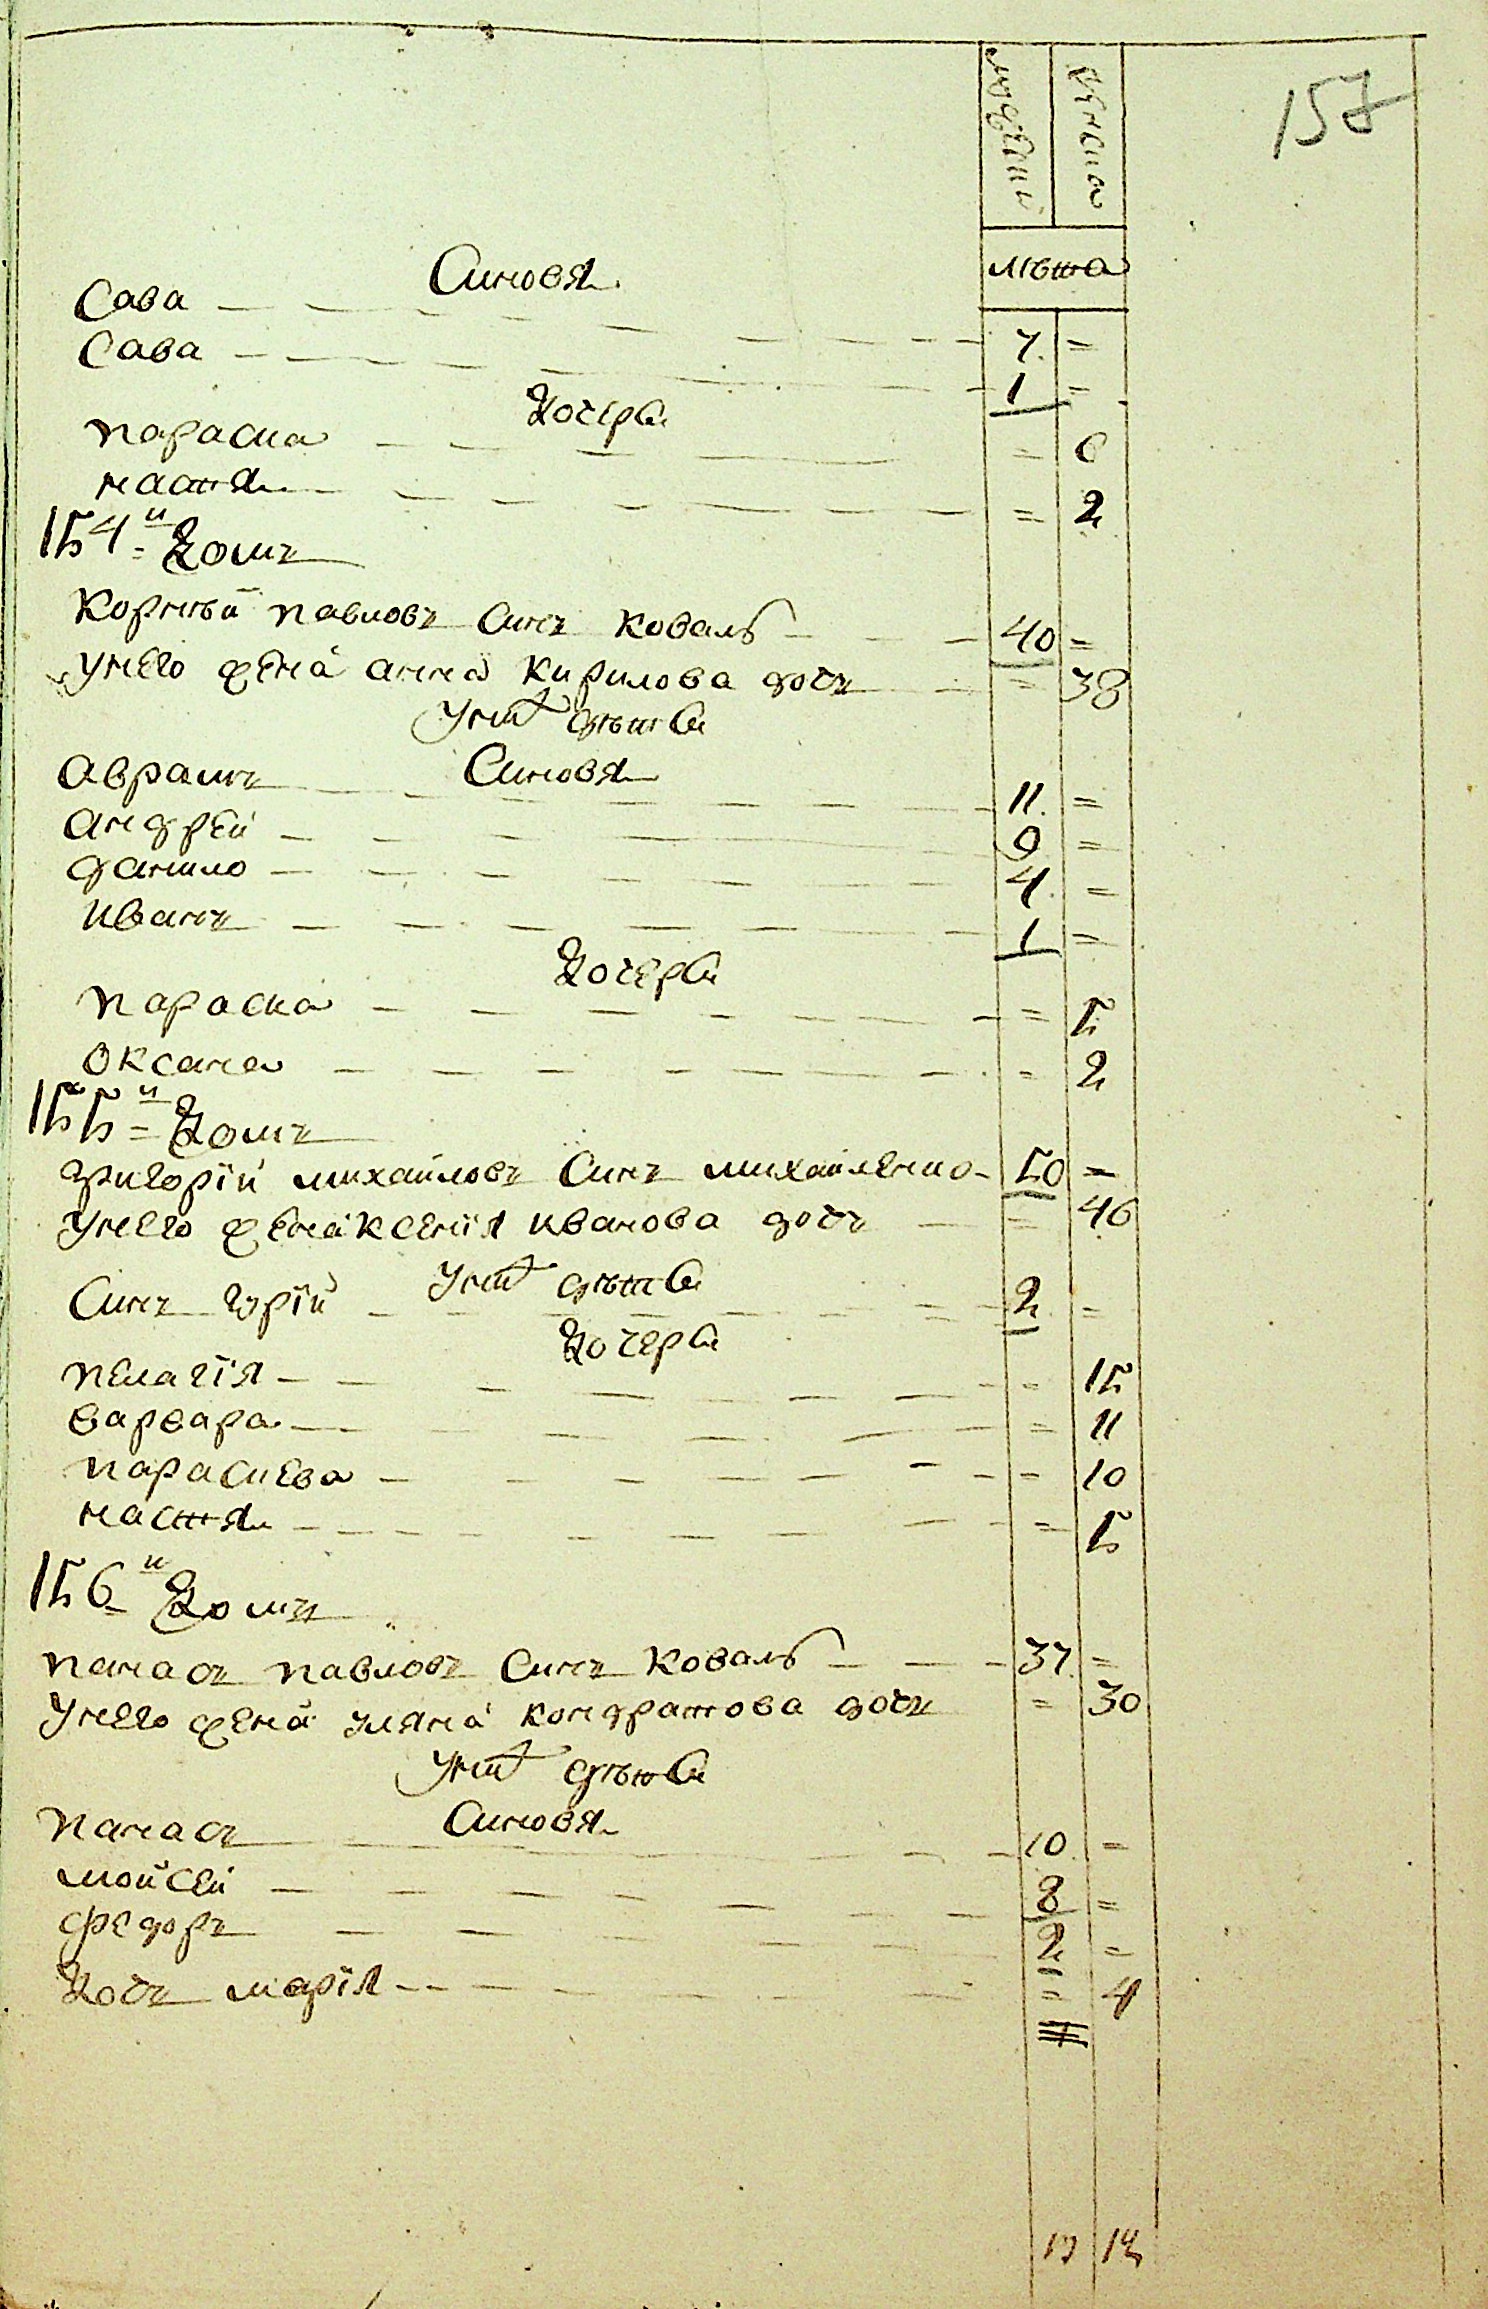 157
мужеский женска
лѣта
Синовя
Сава — — 7 =
Сава — — 1 =
Дочери
параска — — = 6
настя — — = 2
154й Домъ
Корнѣй павловъ Синъ коваль — 40 =
Унего жена анна кирилова дочъ — = 38
Унихъ дѣти
Синовя
Аврамъ — — 11 =
Андрей — — 9 =
данило — — 4 =
иванъ — — 1 =
Дочери
параска — — = 5
оксана — — = 2
155й Домъ
григорїй михайловъ Синъ михайленко — 50 =
Унего жена ксенїя иванова дочъ — = 46
Унихъ дѣти
Синъ гурїй — — 2 =
Дочери
пелагїя — — = 15
варвара — — = 11
параскева — — = 10
настя — — = 5
156й Домъ
панасъ павловъ Синъ коваль — 37 =
Унего жена уляна кондратова дочъ = 30
Унихъ дѣти
Синовя
панасъ — — 10 =
мойсей — — 8 =
федоръ — — 2 =
Дочъ марїя — — = 4
13 14